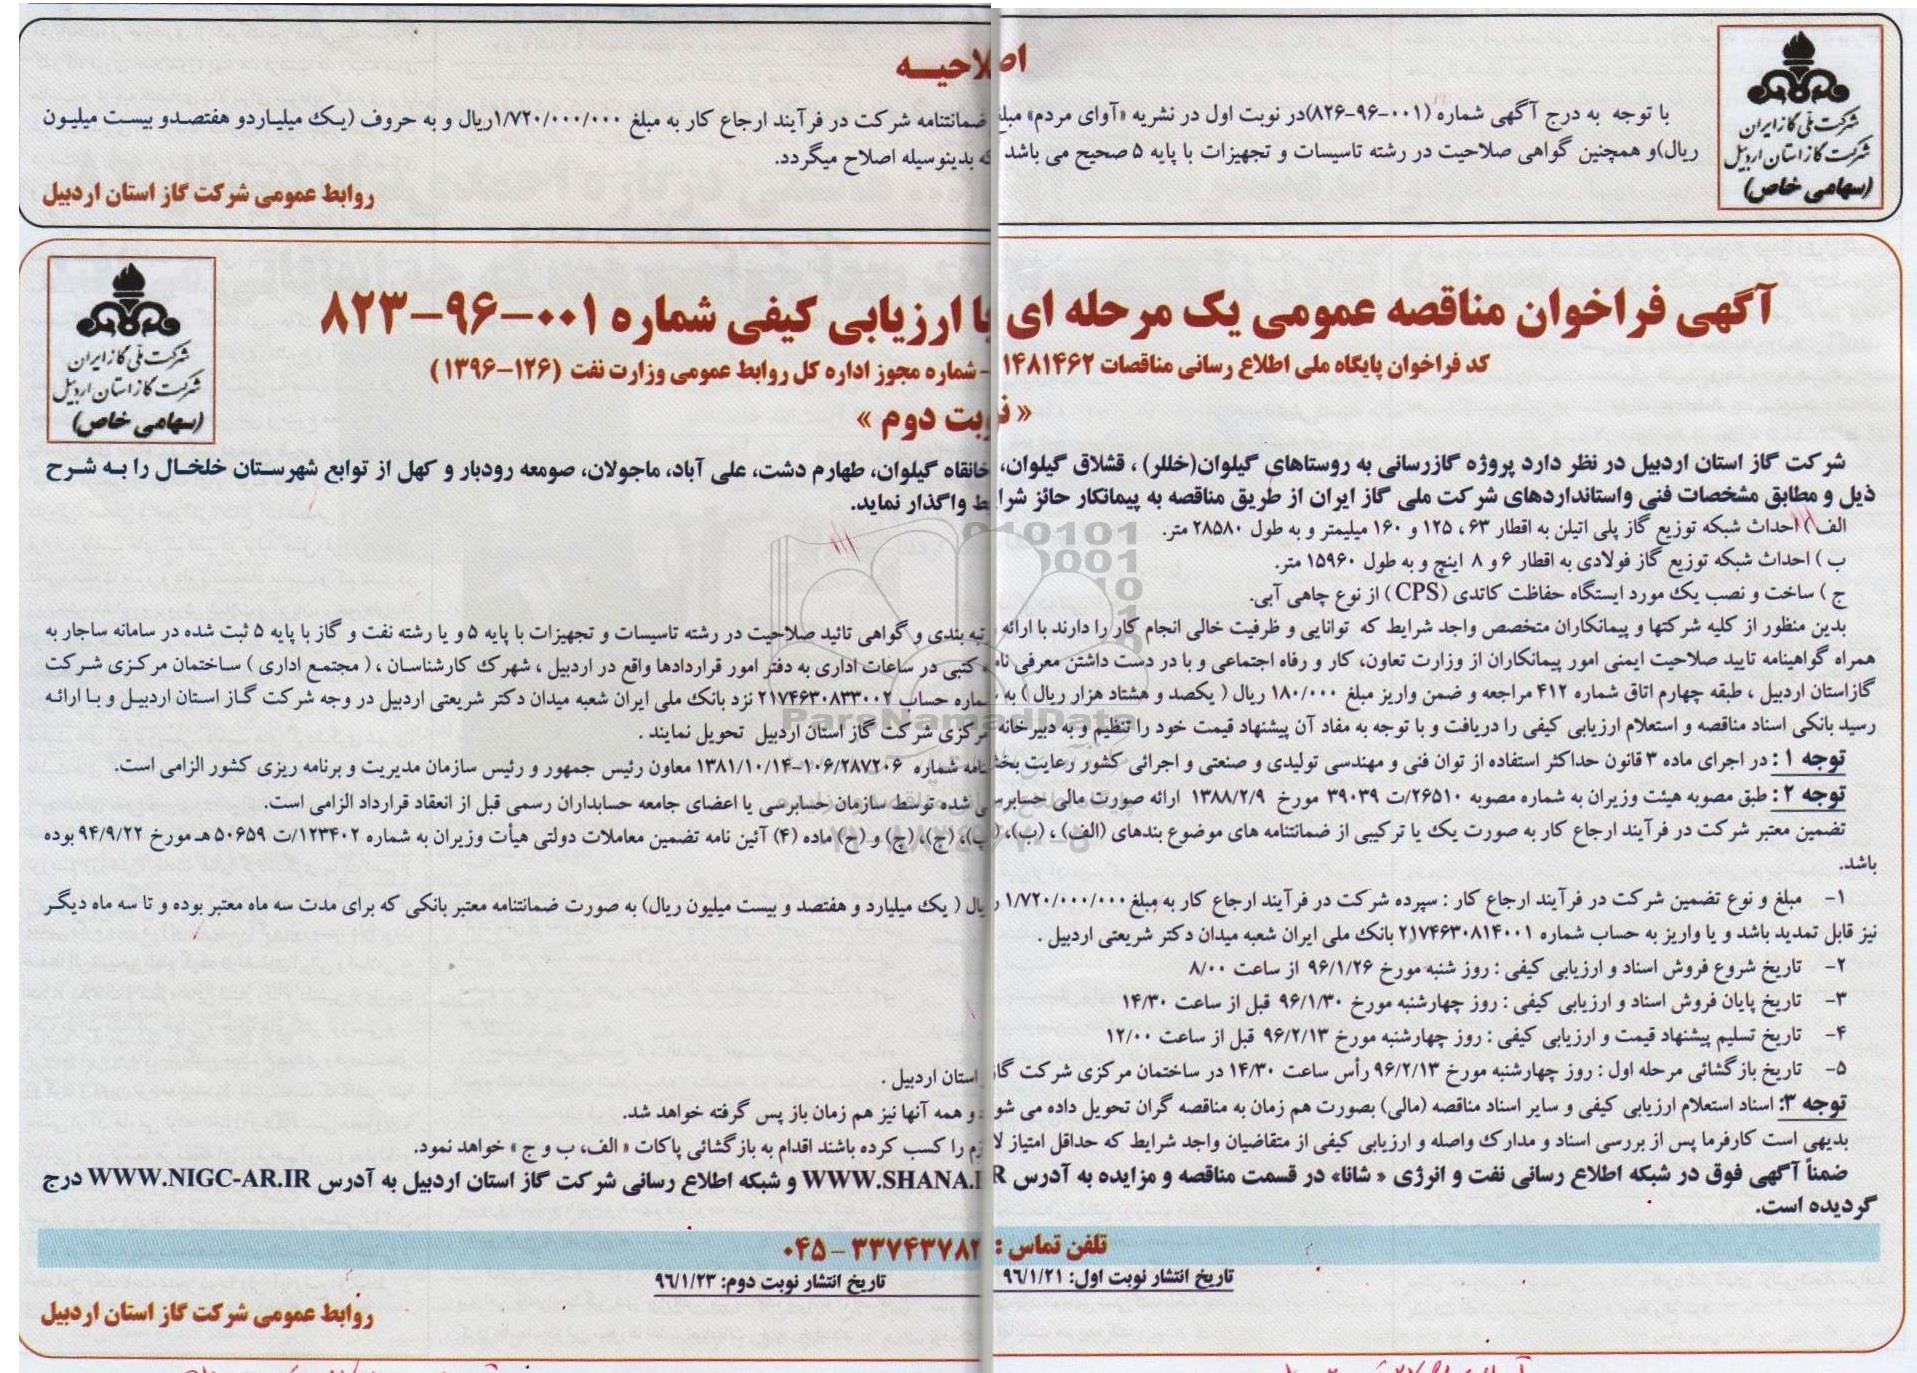 اصلاحیه
شرکت ملی گاز ایران
شرکت گاز استان اردبیل
(سهامی خاص)
با توجه به درج آگهی شماره (۰۰۱-۹۶-۸۲۶)در نوبت اول در نشریه «آوای مردم» مبلغ ضمانتنامه شرکت در فرآیند ارجاع کار به مبلغ ۱/۷۲۰/۰۰۰/۰۰۰ریال و به حروف (یک میلیاردو هفتصدو بیست میلیون
ریال)و همچنین گواهی صلاحیت در رشته تاسیسات و تجهیزات با پایه ۵ صحیح می باشد که بدینوسیله اصلاح میگردد.
روابط عمومی شرکت گاز استان اردبیل
آگهی فراخوان مناقصه عمومی یک مرحله ای با ارزیابی کیفی شماره ۰۰۱-۹۶-۸۲۳
شرکت ملی گاز ایران
شرکت گاز استان اردبیل
(سهامی خاص)
کد فراخوان پایگاه ملی اطلاع رسانی مناقصات ۱۴۸۱۴۶۲ - شماره مجوز اداره کل روابط عمومی وزارت نفت (۱۲۶-۱۳۹۶)
« نوبت دوم »
شرکت گاز استان اردبیل در نظر دارد پروژه گازرسانی به روستاهای گیلوان(خللر) ، قشلاق گیلوان، خانقاه گیلوان، طهارم دشت، علی آباد، ماجولان، صومعه رودبار و کهل از توابع شهرستان خلخال را به شرح
ذیل و مطابق مشخصات فنی واستانداردهای شرکت ملی گاز ایران از طریق مناقصه به پیمانکار حائز شرایط واگذار نماید.
الف ) احداث شبکه توزیع گاز پلی اتیلن به اقطار ۶۳ ، ۱۲۵ و ۱۶۰ میلیمتر و به طول ۲۸۵۸۰ متر.
ب ) احداث شبکه توزیع گاز فولادی به اقطار ۶ و ۸ اینچ و به طول ۱۵۹۶۰ متر.
ج ) ساخت و نصب یک مورد ایستگاه حفاظت کاتدی (CPS) از نوع چاهی آبی.
بدین منظور از کلیه شرکتها و پیمانکاران متخصص واجد شرایط که توانایی و ظرفیت خالی انجام کار را دارند با ارائه رتبه بندی و گواهی تائید صلاحیت در رشته تاسیسات و تجهیزات با پایه ۵ و یا رشته نفت و گاز با پایه ۵ ثبت شده در سامانه ساجار به
همراه گواهینامه تایید صلاحیت ایمنی امور پیمانکاران از وزارت تعاون، کار و رفاه اجتماعی و با در دست داشتن معرفی نامه کتبی در ساعات اداری به دفتر امور قراردادها واقع در اردبیل ، شهرک کارشناسان ، ( مجتمع اداری ) ساختمان مرکزی شرکت
گازاستان اردبیل ، طبقه چهارم اتاق شماره ۴۱۲ مراجعه و ضمن واریز مبلغ ۱۸۰/۰۰۰ ریال ( یکصد و هشتاد هزار ریال ) به شماره حساب ۲۱۷۴۶۳۰۸۳۳۰۰۲ نزد بانک ملی ایران شعبه میدان دکتر شریعتی اردبیل در وجه شرکت گاز استان اردبیل و با ارائه
رسید بانکی اسناد مناقصه و استعلام ارزیابی کیفی را دریافت و با توجه به مفاد آن پیشنهاد قیمت خود را تنظیم و به دبیرخانه مرکزی شرکت گاز استان اردبیل تحویل نمایند .
توجه ۱ : در اجرای ماده ۳ قانون حداکثر استفاده از توان فنی و مهندسی تولیدی و صنعتی و اجرائی کشور رعایت بخشنامه شماره ۱۰۶/۲۸۷۲۰۶-۱۳۸۱/۱۰/۱۴ معاون رئیس جمهور و رئیس سازمان مدیریت و برنامه ریزی کشور الزامی است.
توجه ۲ : طبق مصوبه هیئت وزیران به شماره مصوبه ۲۶۵۱۰/ت ۳۹۰۳۹ مورخ ۱۳۸۸/۲/۹ ارائه صورت مالی حسابرسی شده توسط سازمان حسابرسی یا اعضای جامعه حسابداران رسمی قبل از انعقاد قرارداد الزامی است.
تضمین معتبر شرکت در فرآیند ارجاع کار به صورت یک یا ترکیبی از ضمانتنامه های موضوع بندهای (الف) ، (ب)، (پ)، (ج)، (چ) و (ح) ماده (۴) آئین نامه تضمین معاملات دولتی هیأت وزیران به شماره ۱۲۳۴۰۲/ت ۵۰۶۵۹ هـ مورخ ۹۴/۹/۲۲ بوده
باشد.
۱- مبلغ و نوع تضمین شرکت در فرآیند ارجاع کار : سپرده شرکت در فرآیند ارجاع کار به مبلغ ۱/۷۲۰/۰۰۰/۰۰۰ ریال ( یک میلیارد و هفتصد و بیست میلیون ریال) به صورت ضمانتنامه معتبر بانکی که برای مدت سه ماه معتبر بوده و تا سه ماه دیگر
نیز قابل تمدید باشد و یا واریز به حساب شماره ۲۱۷۴۶۳۰۸۱۴۰۰۱ بانک ملی ایران شعبه میدان دکتر شریعتی اردبیل .
۲- تاریخ شروع فروش اسناد و ارزیابی کیفی : روز شنبه مورخ ۹۶/۱/۲۶ از ساعت ۸/۰۰
۳- تاریخ پایان فروش اسناد و ارزیابی کیفی : روز چهارشنبه مورخ ۹۶/۱/۳۰ قبل از ساعت ۱۴/۳۰
۴- تاریخ تسلیم پیشنهاد قیمت و ارزیابی کیفی : روز چهارشنبه مورخ ۹۶/۲/۱۳ قبل از ساعت ۱۲/۰۰
۵- تاریخ بازگشائی مرحله اول : روز چهارشنبه مورخ ۹۶/۲/۱۳ رأس ساعت ۱۴/۳۰ در ساختمان مرکزی شرکت گاز استان اردبیل .
توجه ۳: اسناد استعلام ارزیابی کیفی و سایر اسناد مناقصه (مالی) بصورت هم زمان به مناقصه گران تحویل داده می شود و همه آنها نیز هم زمان باز پس گرفته خواهد شد.
بدیهی است کارفرما پس از بررسی اسناد و مدارک واصله و ارزیابی کیفی از متقاضیان واجد شرایط که حداقل امتیاز لازم را کسب کرده باشند اقدام به بازگشائی پاکات « الف، ب و ج » خواهد نمود.
ضمناً آگهی فوق در شبکه اطلاع رسانی نفت و انرژی « شانا» در قسمت مناقصه و مزایده به آدرس WWW.SHANA.IR و شبکه اطلاع رسانی شرکت گاز استان اردبیل به آدرس WWW.NIGC-AR.IR درج
گردیده است.
تلفن تماس : ۳۳۷۴۳۷۸۲ - ۰۴۵
تاریخ انتشار نوبت اول: ۹۶/۱/۲۱ تاریخ انتشار نوبت دوم: ۹۶/۱/۲۳
روابط عمومی شرکت گاز استان اردبیل